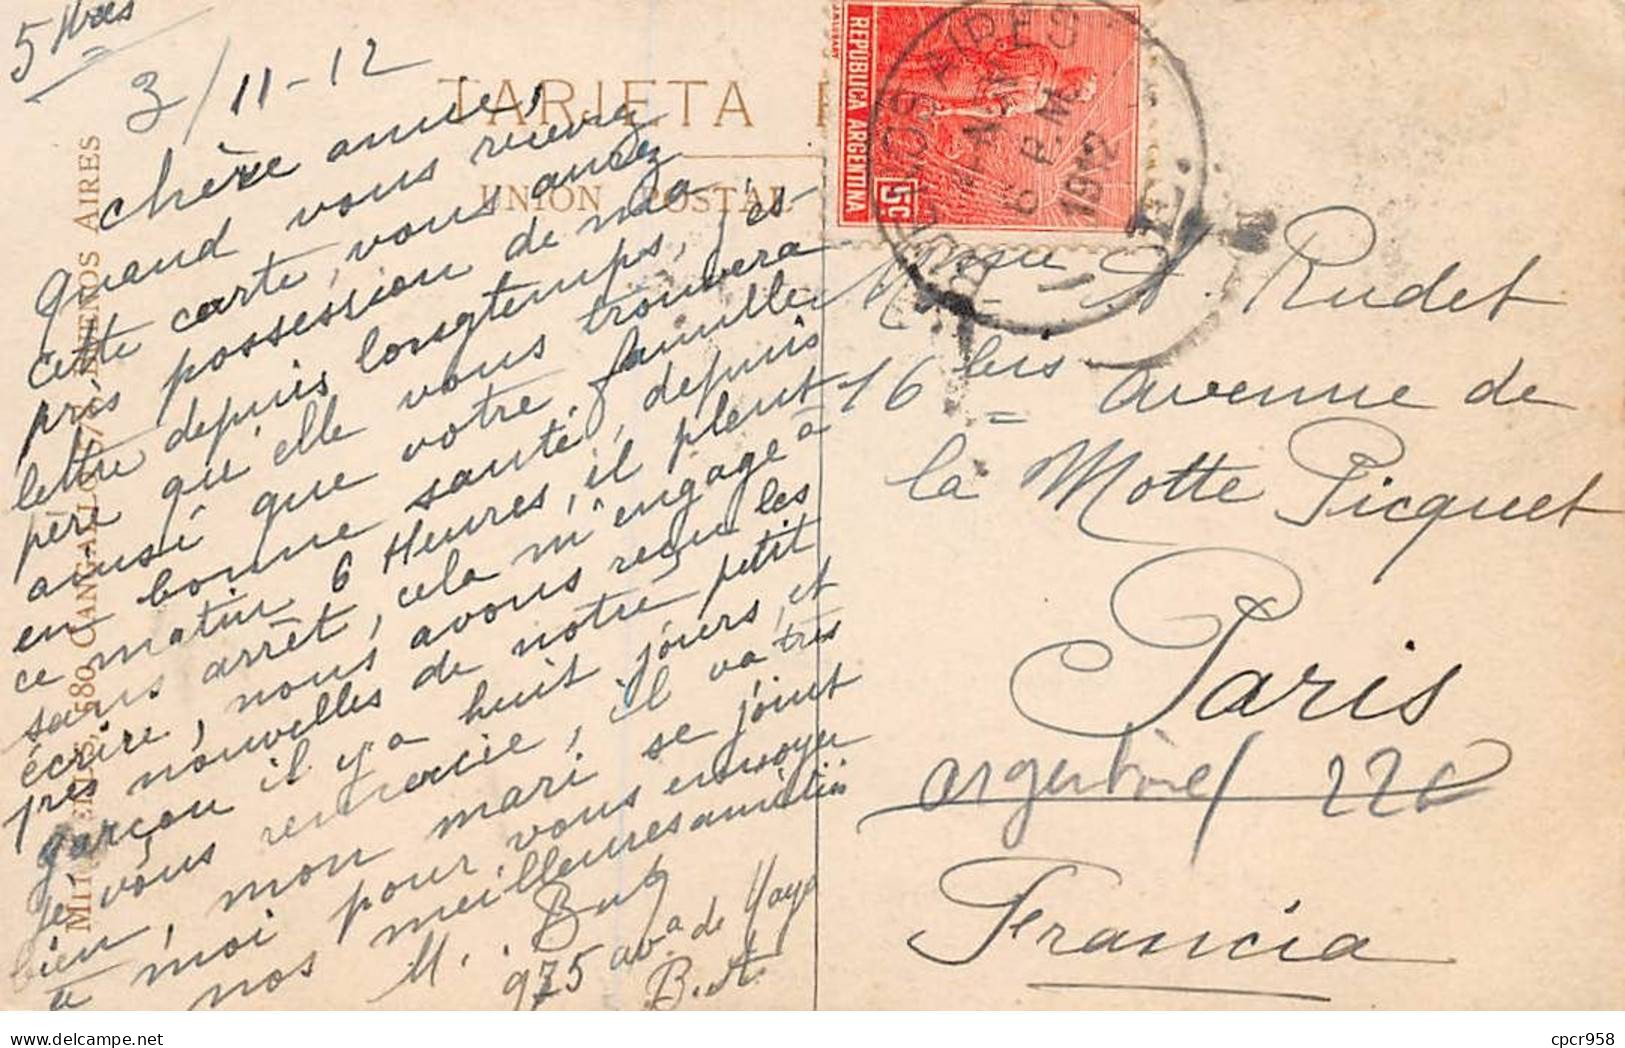 5 Hres
3/11-12
TARJETA
UNION POSTAL
REPUBLICA ARGENTINA
5c
BUENOS AIRES
1912
chère amie,
Quand vous recevrez
cette carte, vous aurez
pris possession de ma
lettre depuis longtemps, j'es-
père qu'elle vous trouvera
ainsi que votre famille
en bonne santé, depuis
ce matin 6 Heures, il pleut
sans arrêt, cela m'engage à
écrire, nous avons reçu les
près nouvelles de notre petit
garçon il y a huit jours, et
je vous remercie, il va très
bien, mon mari se joint
à moi pour vous envoyer
nos meilleures amitiés
M.
975 avda de Mayo
B. A.
580 CANGALLO BUENOS AIRES
Mme A. Rudet
16 bis avenue de
la Motte Picquet
Paris
argentine / 220
Francia
cpcr958